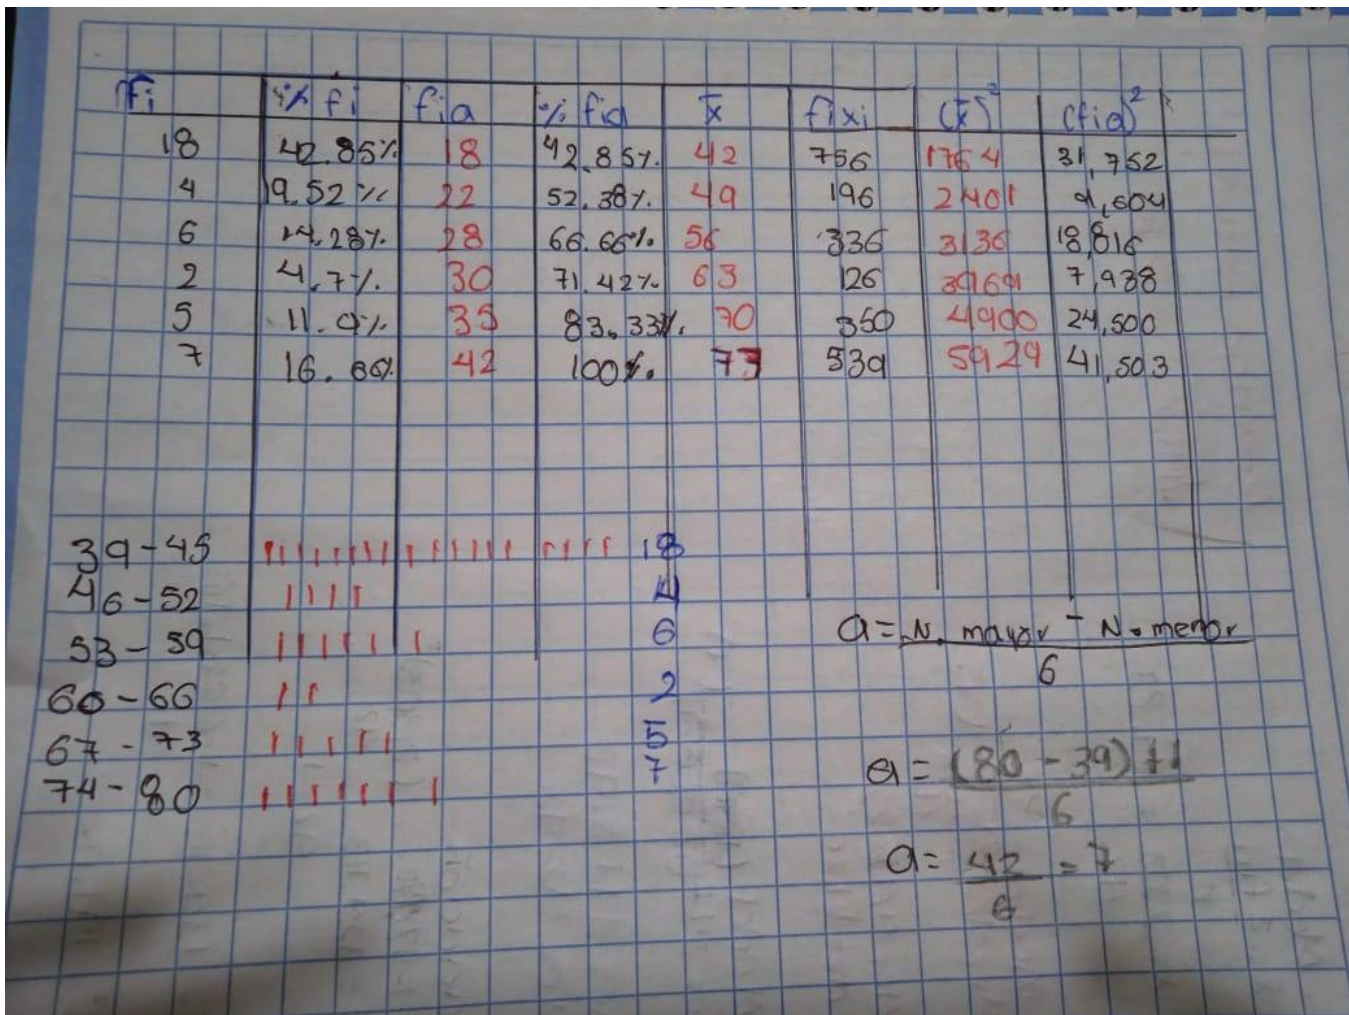 fi %fi fia %fia x̄ fixi (x̄)² (fia)²
18 42.85% 18 42.85% 42 756 1764 31,752
4 9.52% 22 52.38% 49 196 2401 9,604
6 14.28% 28 66.66% 56 336 3136 18,816
2 4.7% 30 71.42% 63 126 3969 7,938
5 11.9% 35 83.33%. 70 350 4900 24,500
7 16.66% 42 100%. 77 539 5929 41,503
39-45 18
46-52 4
53-59 6
60-66 2
67-73 5
74-80 7
a= N. mayor - N. menor
6
a= (80-39)+1
6
a= 42 = 7
6